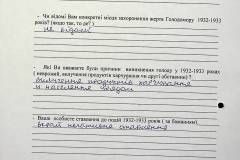 - Чи відомі Вам конкретні місця захоронення жертв Голодомору 1932-1933
років? (якщо так, то де? )
не відомі
- Які Ви вважаєте були причини виникнення голоду у 1932-1933 роках
( неврожай, вилучення продуктів харчування чи другі обставини? )
вилучення продуктів харчування
в населення
- Ваше особисте ставлення до подій 1932-1933 років ( за бажанням)
негативне ставлення